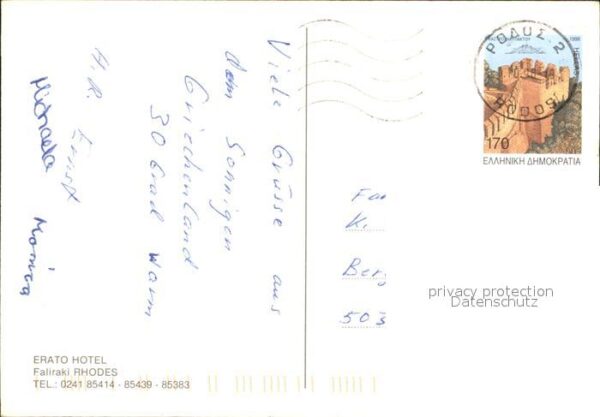 Viele Grüsse aus
dem Sonnigen
Griechenland
30 Grad Warm
H.R. Ernst
Michaela Monica
ERATO HOTEL
Faliraki RHODES
TEL.: 0241 85414 - 85439 - 85383
ΡΟΔΥΣ 2
RODOS
1998
HELLAS
170
ΕΛΛΗΝΙΚΗ ΔΗΜΟΚΡΑΤΙΑ
Fa
K.
Ber
503
privacy protection
Datenschutz